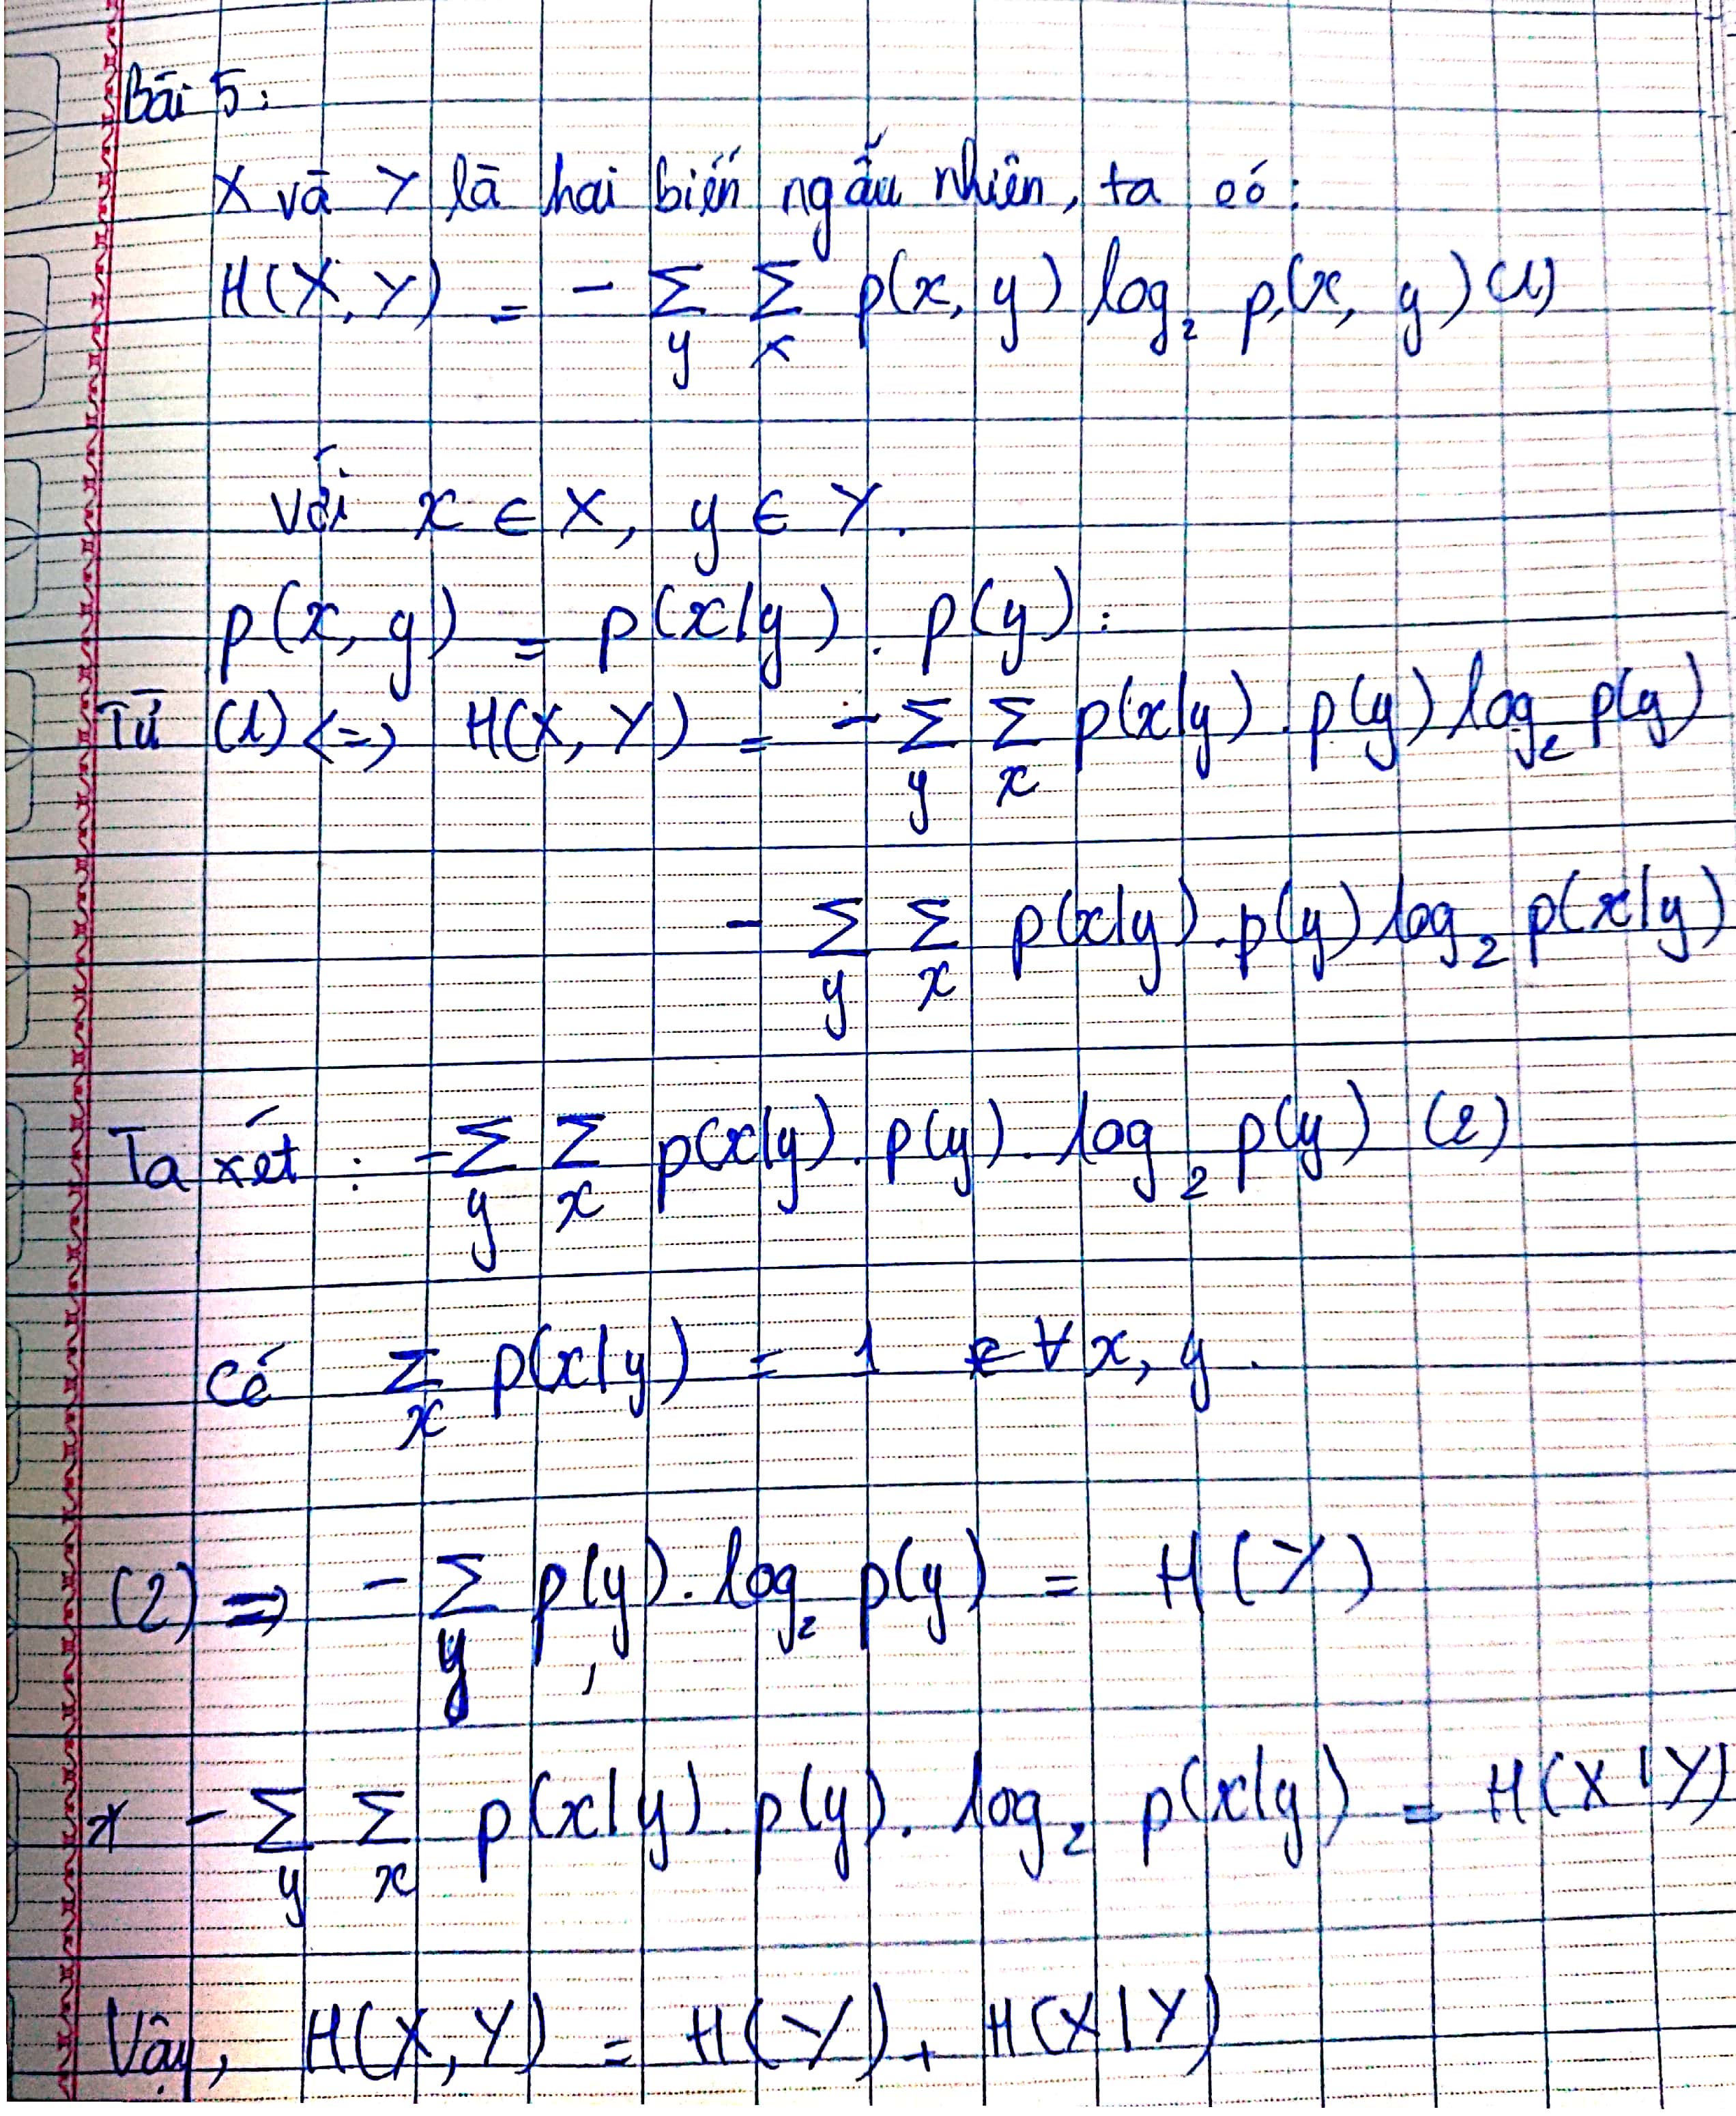 Bài 5:
X và Y là hai biến ngẫu nhiên, ta có:
H(X, Y) = - Σ_y Σ_x p(x, y) log₂ p(x, y) (1)
với x ∈ X, y ∈ Y.
p(x, y) = p(x|y) . p(y) :
Từ (1) <=> H(X, Y) = - Σ_y Σ_x p(x|y) . p(y) log₂ p(y)
- Σ_y Σ_x p(x|y) . p(y) log₂ p(x|y)
Ta xét : - Σ_y Σ_x p(x|y) . p(y) . log₂ p(y) (2)
Có Σ_x p(x|y) = 1 ∀ x, y .
(2) => - Σ_y p(y) . log₂ p(y) = H(Y)
* - Σ_y Σ_x p(x|y) . p(y) . log₂ p(x|y) = H(X|Y)
Vậy, H(X, Y) = H(Y) + H(X|Y)